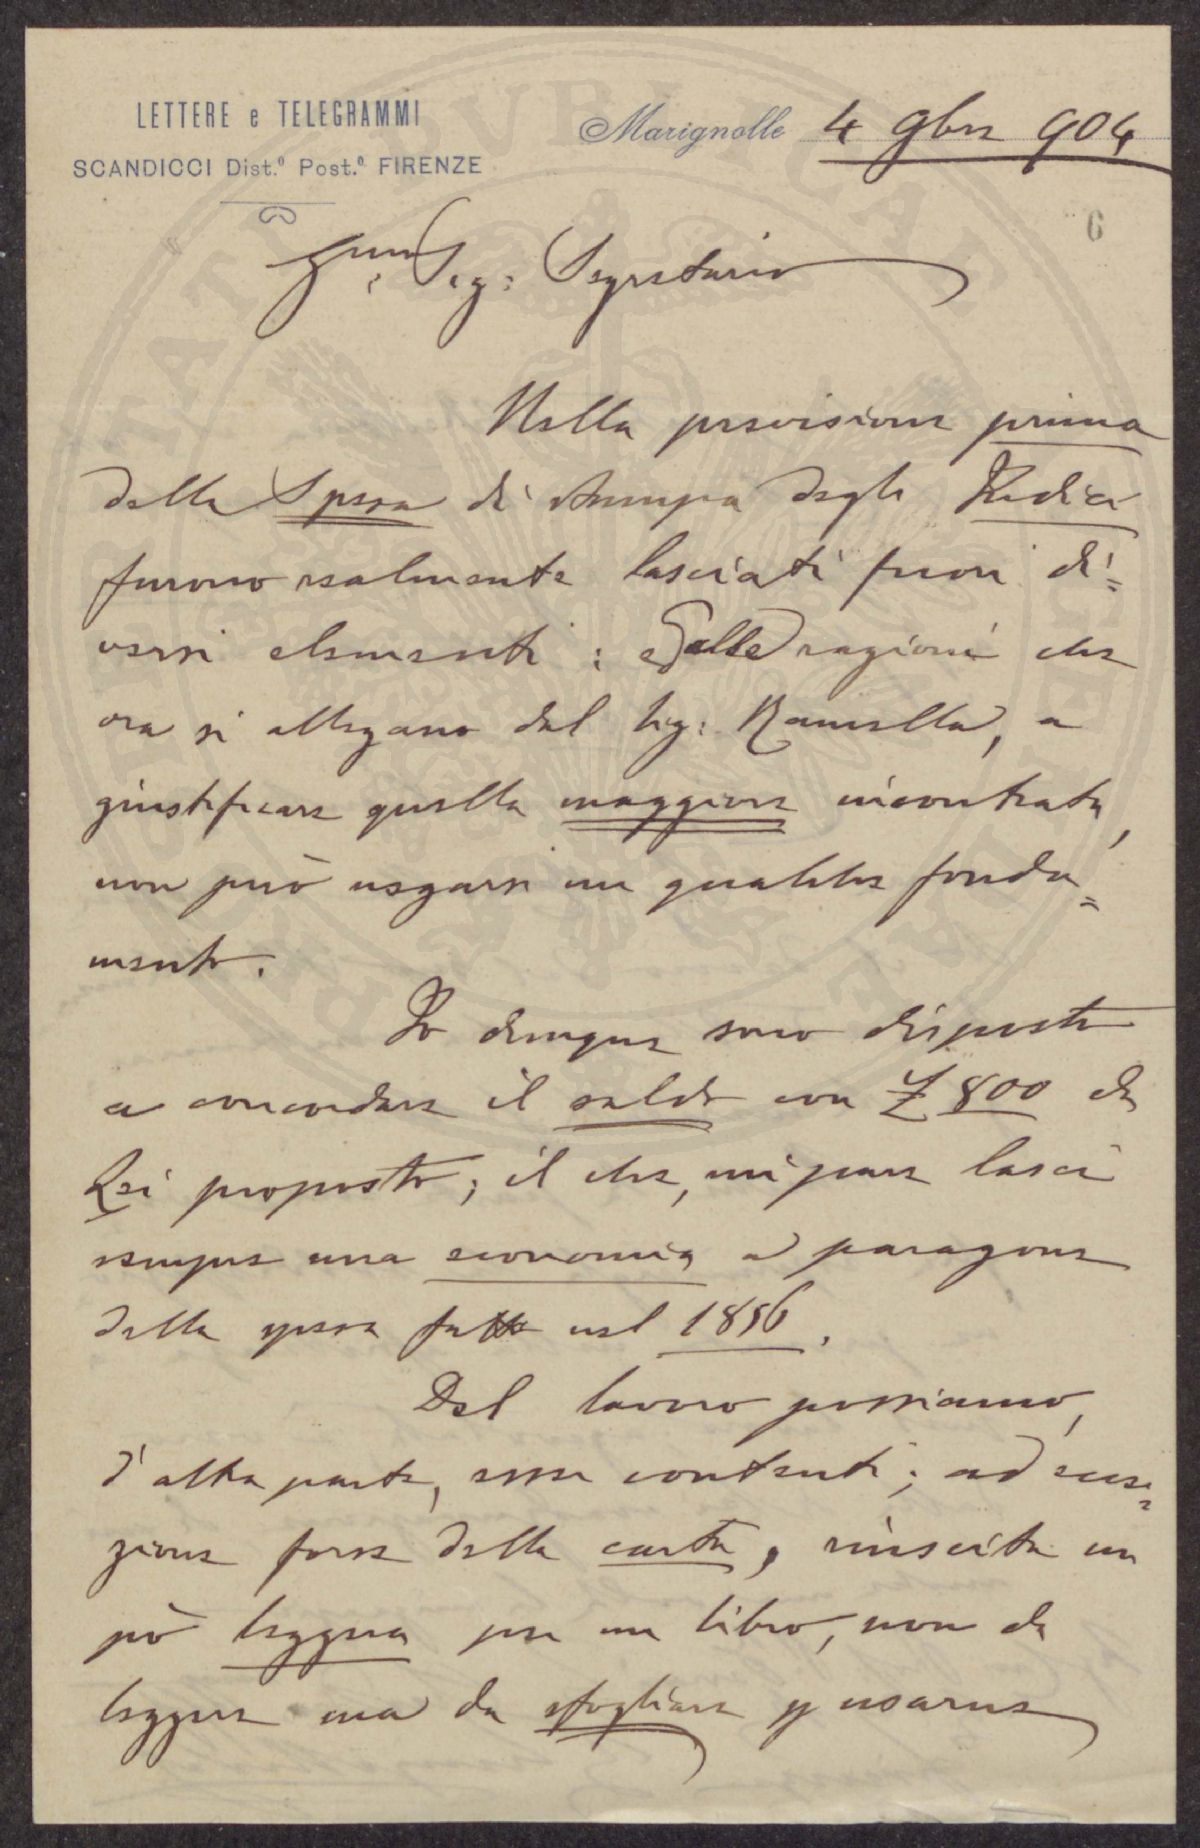 LETTERE e TELEGRAMMI
SCANDICCI Dist.º Post.º FIRENZE
Marignolle 4 9bre 904
6
Sig: Segretario
Nella previsione prima
della Spesa di stampa degli Indici
furono realmente lasciati fuori di=
versi elementi: e alle ragioni che
ora si allegano dal Sig: Ramella, a
giustificare quella maggiore incontrata,
non può negarsi un qualche fonda=
mento.
Io dunque sono disposto
a concordare il saldo con £ 800 da
Lei proposto; il che, mi pare lasci
sempre una economia a paragone
della spesa fatta nel 1896.
Del lavoro possiamo,
d'altra parte, esser contenti; ad ecce=
zione forse della carta, riuscita un
pò leggera per un libro, non da
leggere ma da sfogliare p usarne